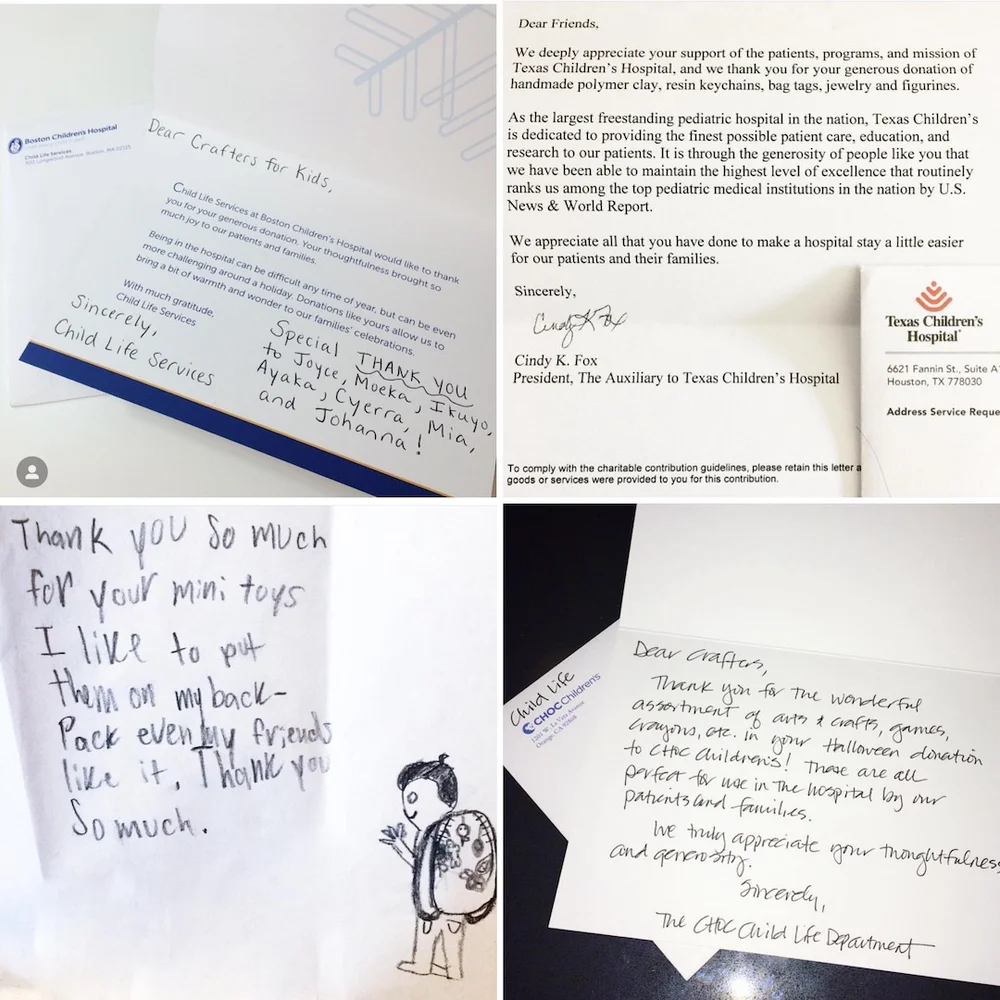 Boston Children's Hospital
Child Life Services
300 Longwood Avenue, Boston, MA 02115
Dear Crafters for Kids,
Child Life Services at Boston Children's Hospital would like to thank
you for your generous donation. Your thoughtfulness brought so
much joy to our patients and families.
Being in the hospital can be difficult any time of year, but can be even
more challenging around a holiday. Donations like yours allow us to
bring a bit of warmth and wonder to our families' celebrations.
With much gratitude,
Child Life Services
Sincerely,
Child Life Services
Special THANK YOU
to Joyce, Moeka, Ikuyo,
Ayaka, Cyerra, Mia,
and Johanna!
Dear Friends,
We deeply appreciate your support of the patients, programs, and mission of
Texas Children's Hospital, and we thank you for your generous donation of
handmade polymer clay, resin keychains, bag tags, jewelry and figurines.
As the largest freestanding pediatric hospital in the nation, Texas Children's
is dedicated to providing the finest possible patient care, education, and
research to our patients. It is through the generosity of people like you that
we have been able to maintain the highest level of excellence that routinely
ranks us among the top pediatric medical institutions in the nation by U.S.
News & World Report.
We appreciate all that you have done to make a hospital stay a little easier
for our patients and their families.
Sincerely,
Cindy K Fox
Cindy K. Fox
President, The Auxiliary to Texas Children's Hospital
To comply with the charitable contribution guidelines, please retain this letter a
goods or services were provided to you for this contribution.
Texas Children's
Hospital
6621 Fannin St., Suite A
Houston, TX 778030
Address Service Reque
Thank you so much
for your mini toys
I like to put
them on my back-
Pack even my friends
like it, Thank you
So much.
Child Life
CHOC Children's
1201 W. La Veta Avenue
Orange, CA 92868
Dear Crafters,
Thank you for the wonderful
assortment of arts & crafts, games,
crayons, etc. in your Halloween donation
to CHOC Children's! These are all
perfect for use in the hospital by our
patients and families.
We truly appreciate your thoughtfulness
and generosity.
Sincerely,
The CHOC Child Life Department